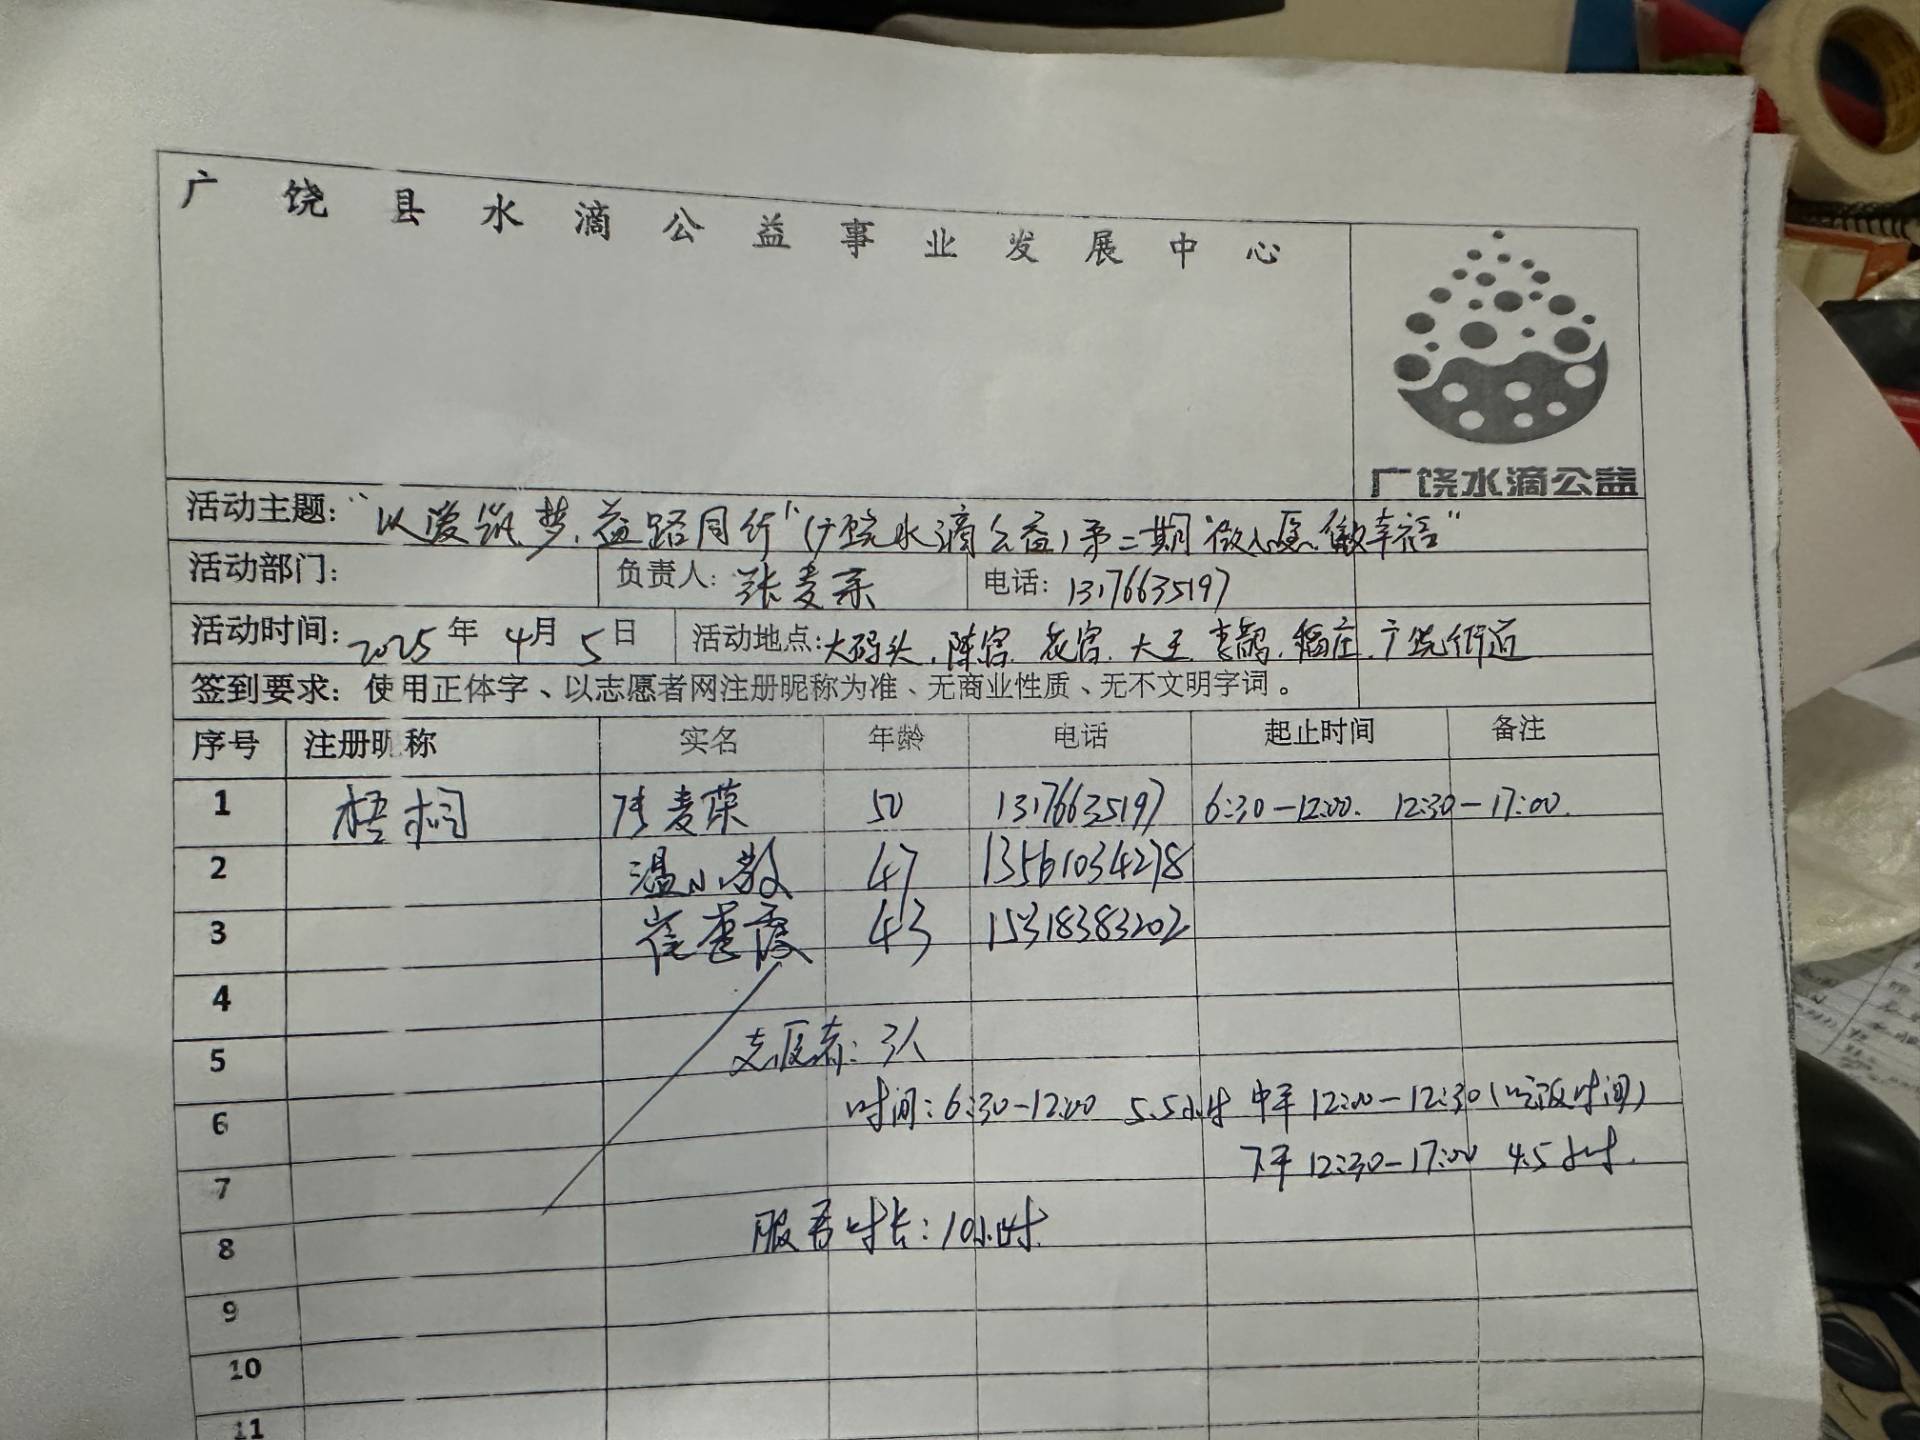 广饶县水滴公益事业发展中心
广饶水滴公益
活动主题:"以爱筑梦.益路同行"(广饶水滴公益)第二期"微心愿.微幸福"
活动部门: 负责人: 张麦荣 电话: 13176635197
活动时间: 2025年 4月 5日 活动地点:大码头.陈官.花官.大王.李鹊.稻庄.广饶街道
签到要求: 使用正体字、以志愿者网注册昵称为准、无商业性质、无不文明字词。
序号 注册昵称 实名 年龄 电话 起止时间 备注
1 梧桐 张麦荣 50 13176635197 6:30-12:00. 12:30-17:00.
2 温小教 47 13561034278
3 崔霞 43 15318383202
4
志愿者: 3人
5
时间: 6:30-12:00 5.5小时 中午 12:00-12:30(吃饭时间)
6
下午 12:30-17:00 4.5小时.
7
服务时长: 10小时
8
9
10
11